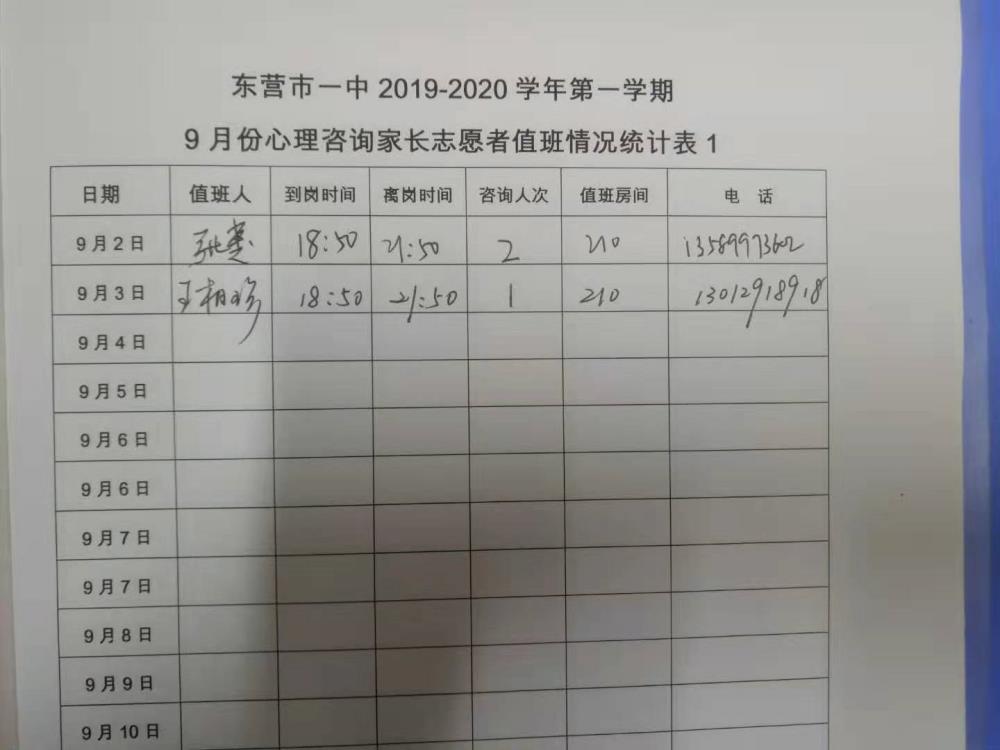 东营市一中 2019-2020 学年第一学期
9 月份心理咨询家长志愿者值班情况统计表 1
日期 值班人 到岗时间 离岗时间 咨询人次 值班房间 电 话
9月2日 18:50 21:50 2 210 13589973602
9月3日 18:50 21:50 1 210 13012918918
9月4日
9月5日
9月6日
9月6日
9月7日
9月7日
9月8日
9月9日
9月10日